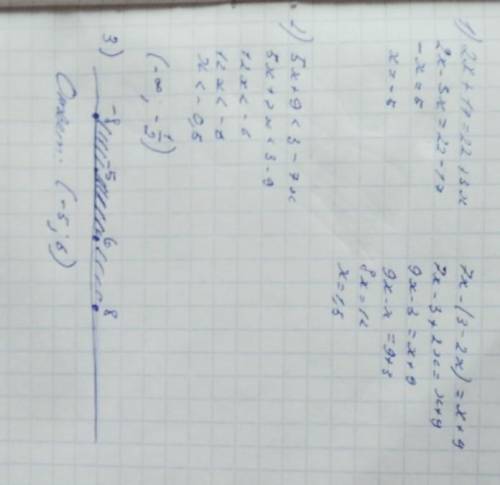 1) 2x + 17 = 22 + 3x
2x - 3x = 22 - 17
-x = 5
x = -5
7x - (3 - 2x) = x + 9
7x - 3 + 2x = x + 9
9x - 3 = x + 9
9x - x = 9 + 3
8x = 12
x = 1,5
5x + 9 < 3 - 7x
5x + 7x < 3 - 9
12x < -6
12x < -6
x < -0,5
(-∞; -1/2)
3) -8 -5 6 8
Ответ: (-5; 6)